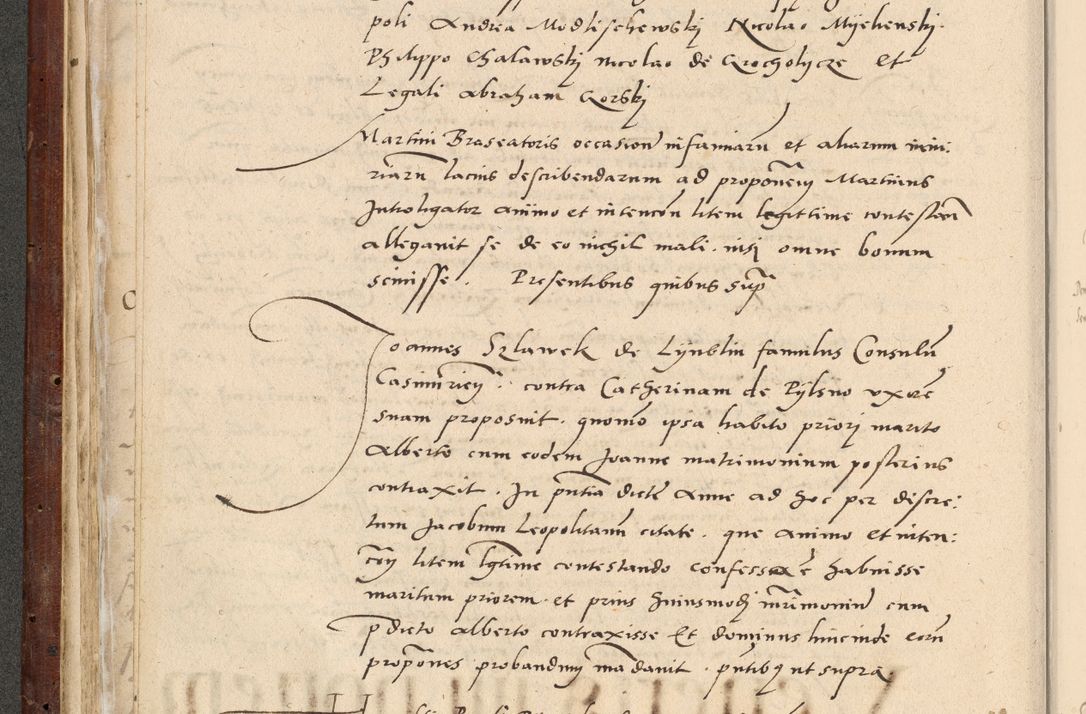 poli Andrea Modlischewskj Nicolao Mijelienskj
Philippo Chalawskj nicolao de Grocholycze Et
Legali Abraham Gorskj
Martini Braseatoris occasion infamiaru et aliarum iniu:
riaru lacius describendarum ad proponem Martinus
Introligator animo et intencon litem legittime contestan
allegauit se de eo nichil mali nisi omne bonum
sciuisse. Presentibus quibus sup
Joannes Szlawek de Lynblin famulus Consulu
Casimirien. contra Catherinam de Pylsno vxore
suam proposuit. quomo ipsa habito priorj marito
Alberto cum eodem Joanne matrimonium posterius
contraxit. In pntia dicte Anne ad hoc per discre:
tum Jacobum Leopolitanu citate. que animo et inten:
con litem lgtime contestando confessa e habuisse
maritum priorem et prius huiusmodj mrimoniu cum
pdicto Alberto contraxisse Et dominus hincinde coru
propones probandum mandauit. pntibq ut supra